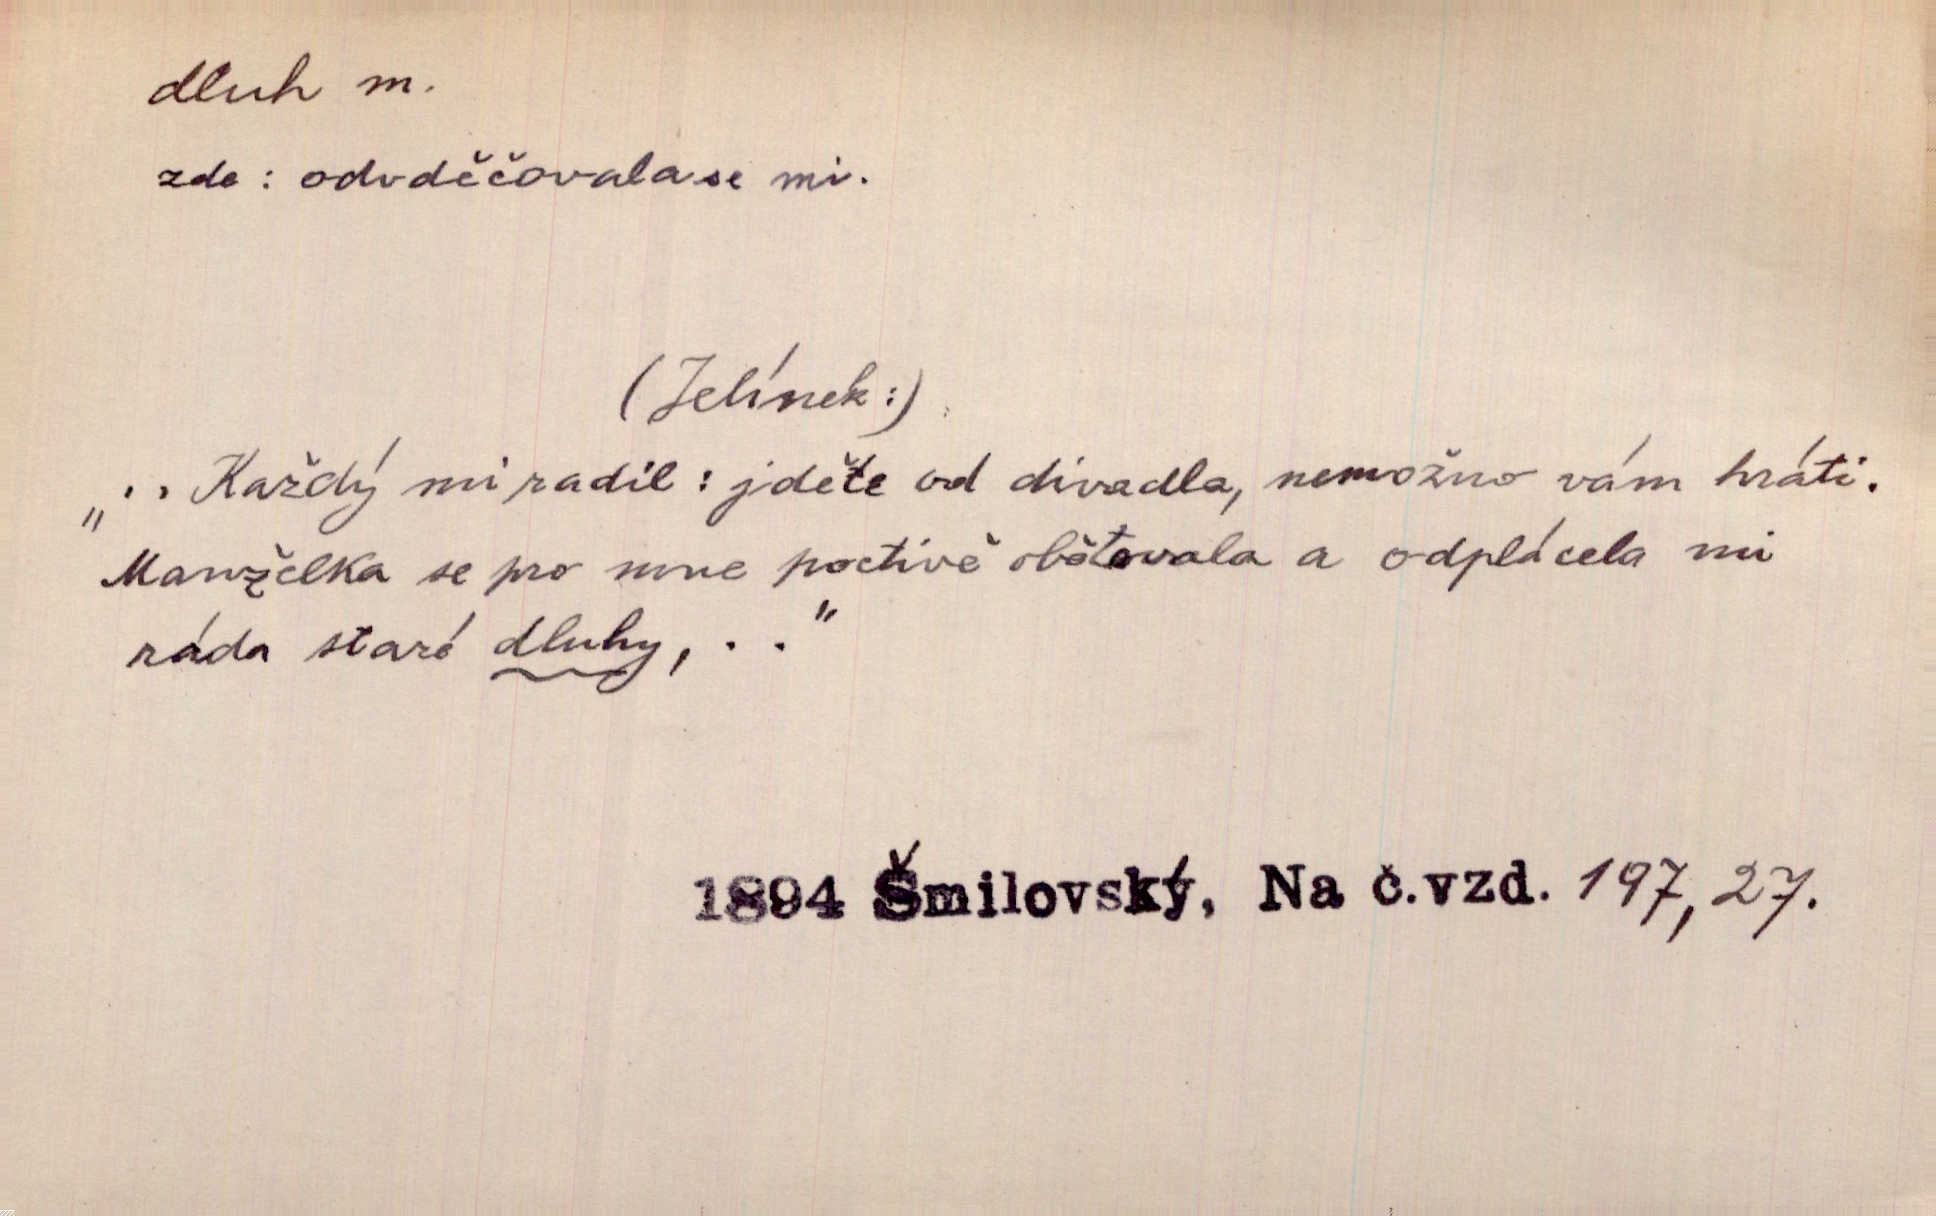 dluh m.
zde: odvděčovala se mi.
(Jelínek:)
„.. Každý mi radil: jděte od divadla, nemožno vám hráti.
Manželka se pro mne poctivě obětovala a odplácela mi
ráda staré dluhy, . .“
1894 Šmilovský, Na č.vzd. 197, 27.